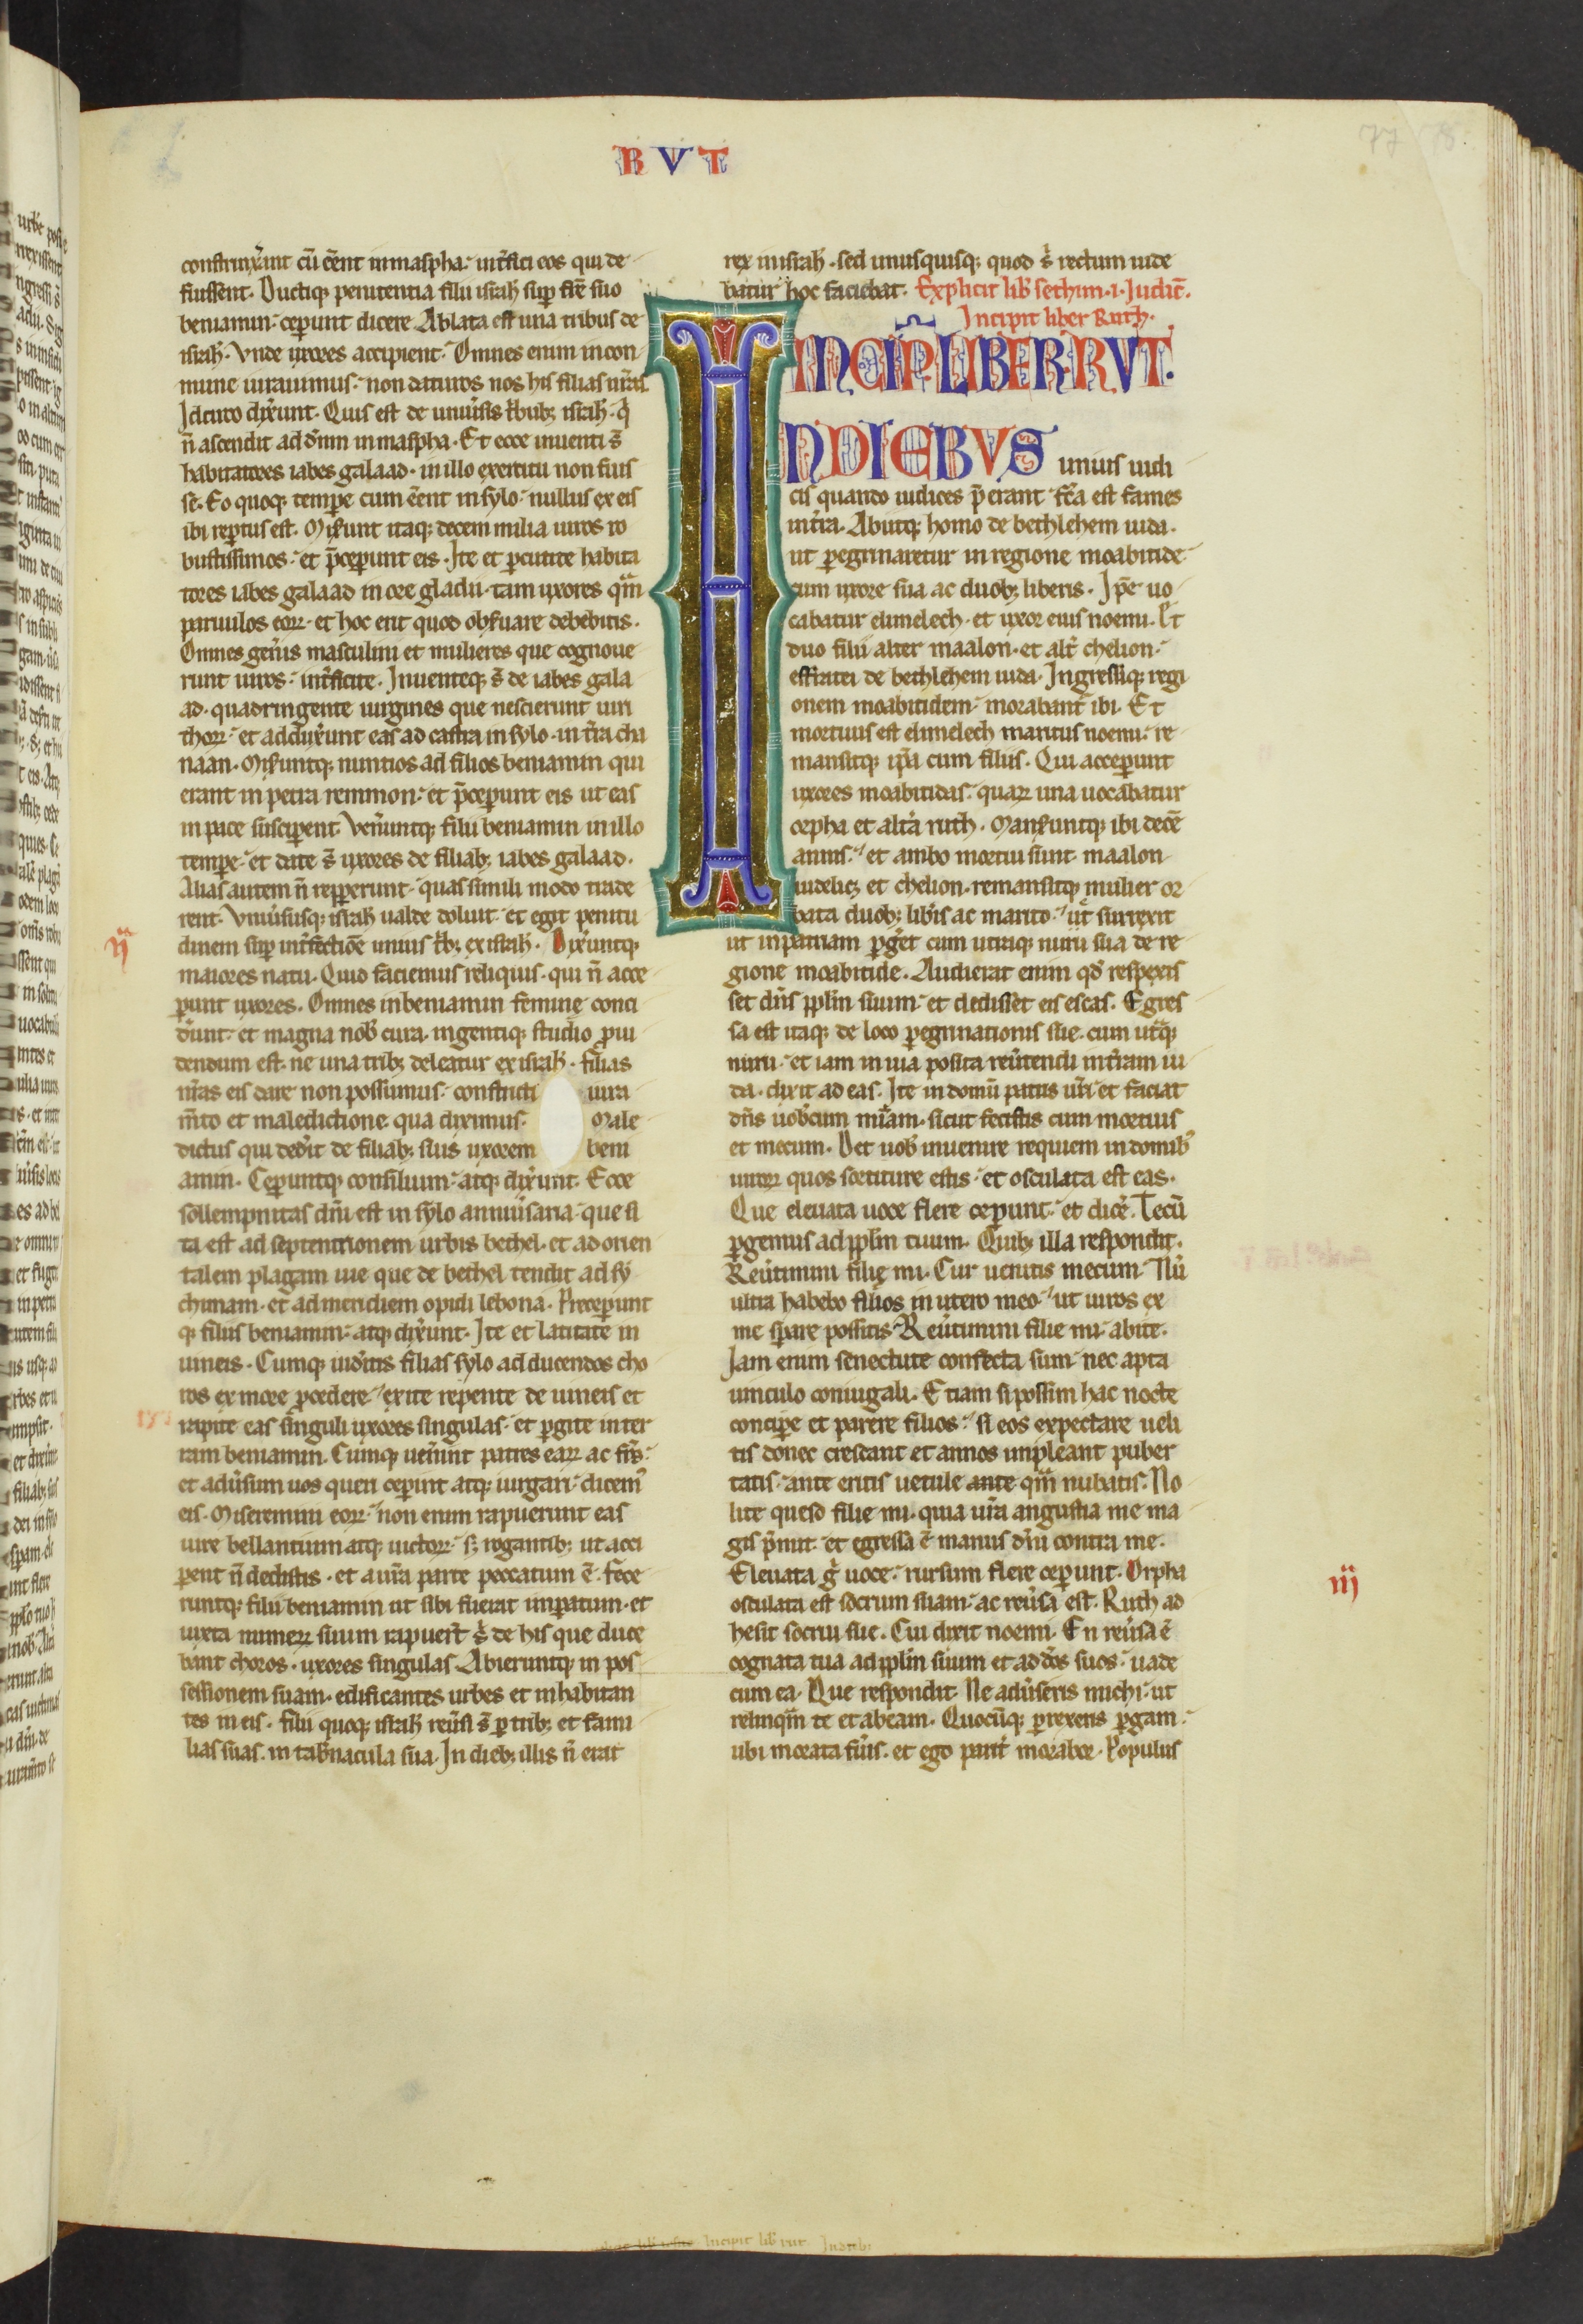 RVT
77 78
constrinx̾int cū ēent in maspha. int̾fici eos qui de
fuissent. Ductiq; penitentia filii isrl̄ sup fr̄e suo
beniamin. ceperunt dicere Ablata est una tribus de
isrl̄. Vnde uxores accipient. Omnes enim in con
mune iurauimus. non daturos nos his filias nr̄as
Idcirco dix̾unt. Quis est de uniu̾sis t̾bub; isrl̄. q̾
n̄ ascendit ad dn̄m in maspha. Et ecce inuenti s̄
habitatores iabes galaad. in illo exercitu non fuis
se. Eo quoq; tempe cum ēent in sylo. nullus ex eis
ibi reptus est. Mis̾unt itaq; decem milia uiros ro
bustissimos. et p̄ceperunt eis. Ite et pcutite habita
tores iabes galaad in ore gladii. tam uxores qm̄
paruulos eoꝝ. et hoc erit quod obs̾uare debebitis.
Omnes gen̾is masculini et mulieres que cognoue
runt uiros. int̾ficite. Inuenteq; s̄ de iabes gala
ad. quadringente uirgines que nescierunt uiri
thoꝝ. et addux̾unt eas ad castra in sylo. in t̾ra cha
naan. Mis̾untq; nuntios ad filios beniamin qui
erant in petra remmon. et p̄ceperunt eis ut eas
in pace susciperent. Ven̾untq; filii beniamin in illo
tempe. et date s̄ uxores de filiab; iabes galaad.
Alias autem n̄ reppererunt. quas simili modo trade
rent. Vniu̾susq; isrl̄ ualde doluit. et egit penitu
dinem sup int̾fectiōe unius t̾b; ex isrl̄. Dix̾untq;
maiores natu. Quid faciemus reliquis. qui n̄ acce
perunt uxores. Omnes in beniamin feminę conci
d̾unt. et magna nob̄ cura. ingentiq; studio proui
dendum est. ne una trib; deleatur ex isrl̄. filias
nr̄as eis dare non possumus. constricti iura
m̄to et maledictione. qua diximus. Male
dictus qui ded̾it de filiab; suis uxorem beni
amin. Ceperuntq; consilium. atq; dix̾unt. Ecce
sollempnitas dn̄i est in sylo anniu̾saria. que si
ta est ad septentrionem urbis bethel. et ad orien
talem plagam uie que de bethel tendit ad sy
chimam. et ad meridiem opidi lebona. Preceperunt
q; filiis beniamin. atq; dix̾unt. Ite et latitate in
uineis. Cumq; uid̾itis filias sylo ad ducendos cho
ros ex more procedere. exite repente de uineis et
rapite eas singuli uxores singulas. et pgite in ter
ram beniamin. Cumq; uen̾int patres eaꝝ ac fr̄s.
et adu̾sum uos queri ceperint atq; iurgari. dicem̾
eis. Miseremini eoꝝ. non enim rapuerunt eas
iure bellantium atq; uictoꝝ. s; rogantib; ut acci
perent n̄ dedistis. et a ur̄a parte peccatum ē. fece
runtq; filii beniamin ut sibi fuerat imperatum. et
iuxta numerꝝ suum rapuer̄t s̾ de his que duce
bant choros. uxores singulas. Abieruntq; in pos
sessionem suam. edificantes urbes et inhabitan
tes in eis. filii quoq; isrl̄ reu̾si s̄ p trib; et fami
lias suas. in tab̾nacula sua. In dieb; illis n̄ erat
rex in isrl̄. sed unusquisq; quod s̾ rectum uide
batur hoc faciebat. Explicit lib̄ sethim. i. Judic̄.
Incipit liber Ruth.
INCIP̄ LIBER RVT.
IN DIEBVS unius iudi
cis quando iudices p̄erant. fc̄a est fames
in t̾ra. Abiitq; homo de bethlehem iuda.
ut pegrinaretur in regione moabitide
cum uxore sua ac duob; liberis. Ip̄e uo
cabatur elimelech. et uxor eius noemi. Et
duo filii alter maalon. et alt̾ chelion.
effratei de bethlehem iuda. Ingressiq; regi
onem moabitidem. morabant̾ ibi. Et
mortuus est elimelech maritus noemi. re
mansitq; ip̄a cum filiis. Qui acceperunt
uxores moabitidas. quaꝝ una uocabatur
orpha et alt̾a ruth. Mans̾untq; ibi decē
annis. et ambo mortui sunt. maalon
uidelic; et chelion. remansitq; mulier or
bata duob; lib̾is ac marito. ut surrexit
ut in patriam pg̾et cum utraq; nuru sua de re
gione moabitide. Audierat enim qd̾ respexis
set dn̄s pplm̄ suum. et dedisset eis escas. Egres
sa est itaq; de loco pegrinationis sue. cum utq̾;
nuru. et iam in uia posita reu̾tendi in t̾ram iu
da. dixit ad eas. Ite in domū patris ur̄i et faciat
dn̄s uob̄cum mīam. sicut fecistis cum mortuis
et mecum. Det uob̄ inuenire requiem in domib̾
uiroꝝ quos sortiture estis. et osculata est eas.
Que eleuata uoce flere ceperunt. et dic̾e. Tecū
pgemus ad pplm̄ tuum. Quib; illa respondit.
Reu̾timini filię mi. Cur uenitis mecum. Nū
ultra habebo filios in utero meo. ut uiros ex
me sperare possitis. Reu̾timini filie mi. abite.
Iam enim senectute confecta sum. nec apta
uinculo coniugali. Etiam si possim hac nocte
concipe et parere filios. si eos expectare ueli
tis donec crescant et annos impleant puber
tatis. ante eritis uetule ante qm̄ nubatis. No
lite queso filie mi. quia ur̄a angustia me ma
gis p̄mit. et egressa ē manus dn̄i contra me.
Eleuata g̾ uoce. rursum flere ceperunt. Orpha
osculata est socrum suam. ac reu̾sa est. Ruth ad
hesit socrui sue. Cui dixit noemi. En reu̾sa ē
cognata tua ad pplm̄ suum et ad d̄os suos. uade
cum ea. Que respondit. Ne adu̾seris michi. ut
relinqm̄ te et abeam. Quocūq; prexeris pgam.
ubi morata fu̾is. et ego parit̾ morabor. Populus
ij
iij
Incipit lib̄ rut In dieb;